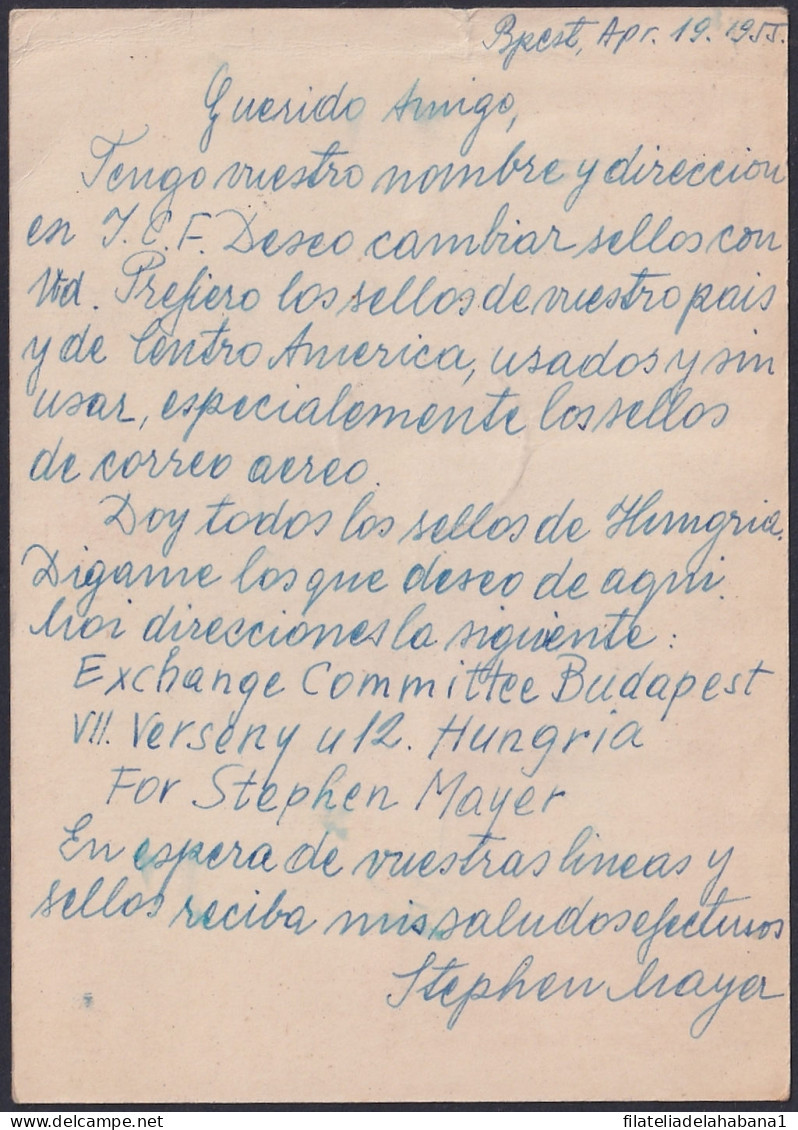 Bpest, Apr. 19. 1955.
Querido Amigo,
Tengo vuestro nombre y direccion
en I.C.F. Deseo cambiar sellos con
Vd. Prefiero los sellos de vuestro pais
y de Centro America, usados y sin
usar, especialemente los sellos
de correo aereo.
Doy todos los sellos de Hungria.
Digame los que deseo de aqui.
Moi direcciones la siguiente:
Exchange Committee Budapest
VII. Verseny u 12. Hungria
For Stephen Mayer
En espera de vuestras lineas y
sellos reciba mis saludos efectuos
Stephen Mayer
delcampe.net
filateliadelahabana1